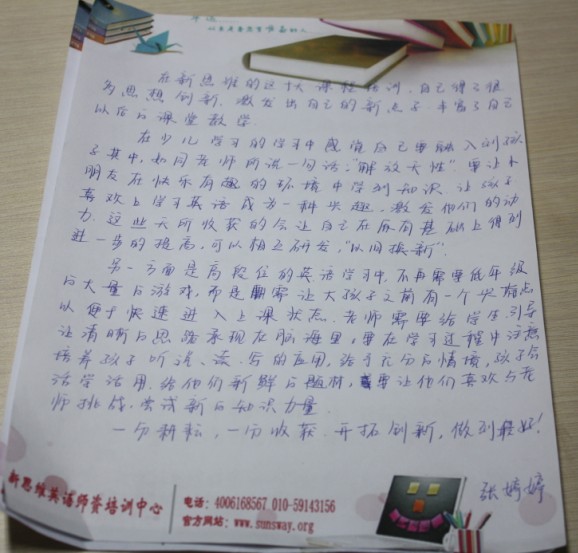 在新思维的这十天课程培训,自己得了很
多思想创新,激发出自己的新点子,丰富了自己
以后的课堂教学。
在少儿学习的学习中感觉自己要融入到孩
子其中,如同老师所说一句话:"解放天性"。要让小
朋友在快乐有趣的环境中学到知识,让孩子
喜欢上学习英语成为一种兴趣,激发他们的动
力。这些天所收获的会让自己在原有基础上得到
进一步的提高,可以相互研发,"以旧换新"。
另一方面是高段位的英语学习中,不再需要低年级
的大量的游戏,而是需让大孩子之前有一个兴趣点
以便于快速进入上课状态。老师需要给学生引导
让清晰的思路呈现在脑海里,要在学习过程中注意
培养孩子听、说、读、写的应用,给予充分的情境,孩子会
活学活用。给他们新鲜的题材,要让他们喜欢与老
师挑战,尝试新的知识力量。
一分耕耘,一份收获。开拓创新,做到轻好!
张婷婷
新思维英语师资培训中心
电话:4006168567 010-59143156
官方网站:www.sunsway.org